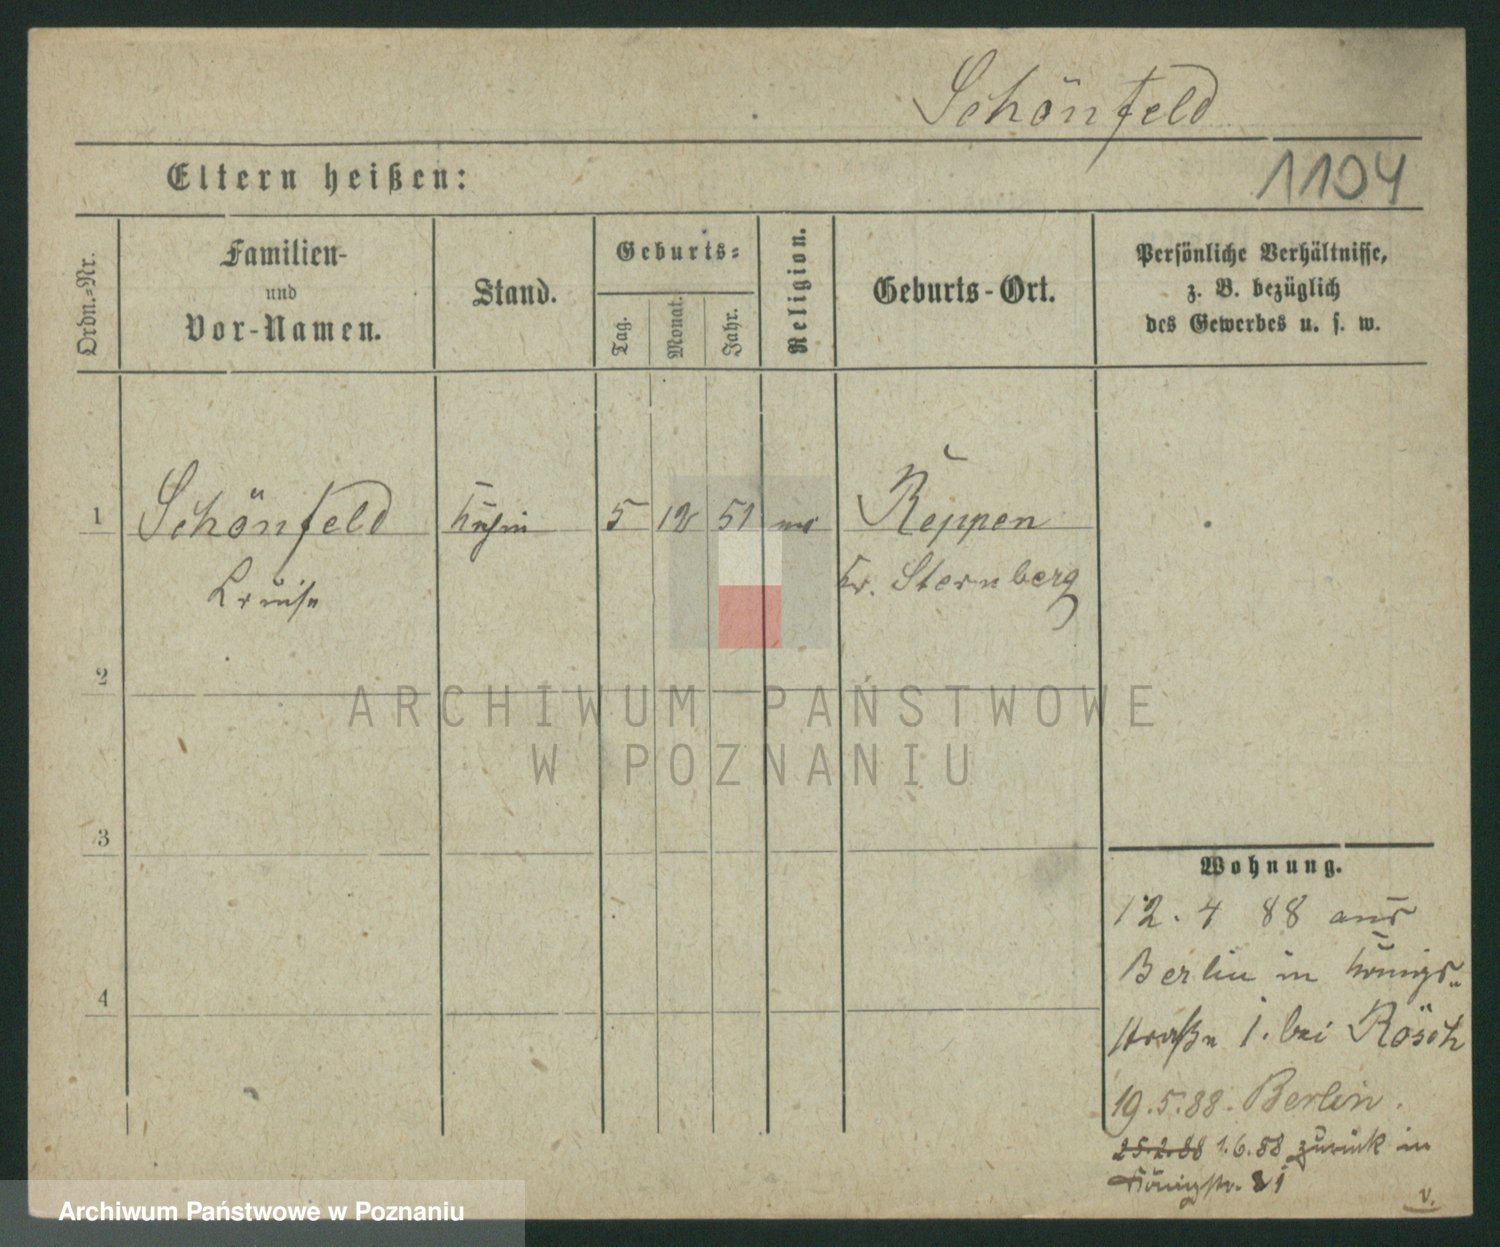 Schönfeld
Eltern heißen:
1104
Ordn.-Nr.
Familien-
und
Vor-Namen.
Stand.
Geburts-
Tag.
Monat.
Jahr.
Religion.
Geburts-Ort.
Persönliche Verhältnisse,
z. B. bezüglich
des Gewerbes u. s. w.
1 Schönfeld 5 12 51 Reppen
Louise Kr. Sternberg
2
3
4
Wohnung.
12. 4 88 aus
Berlin in Königs-
straße 1. bei Rösch
19.5.88. Berlin.
25.2.88 1.6.88 zurück in
Königstr. 1
v.
ARCHIWUM PAŃSTWOWE
W POZNANIU
Archiwum Państwowe w Poznaniu